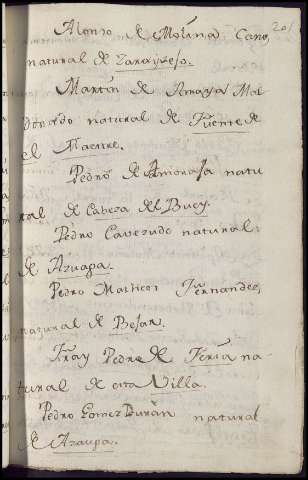 Alonso de Molina Cano 201
natural de Zarayzejo.
Martin de Amaya Mal
donado natural de Fuente de
el Maestre.
Pedro de Amoraga natu
ral de Cabeza del Buey.
Pedro Caverudo natural
de Azuaga.
Pedro Matheos Fernandez,
natural de Bejar.
Fray Pedro de Feria na-
tural de esta Villa.
Pedro Gomez Duràn natural
de Azuaga.